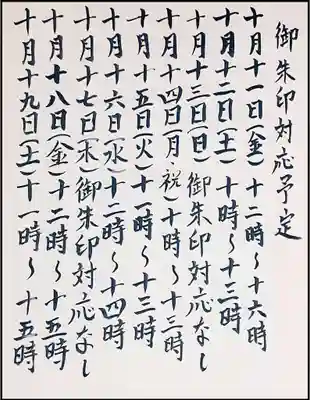 御朱印対応予定
十月十一日(金)十二時〜十六時
十月十二日(土)十時〜十三時
十月十三日(日)御朱印対応なし
十月十四日(月祝)十時〜十三時
十月十五日(火)十一時〜十三時
十月十六日(水)十二時〜十四時
十月十七日(木)御朱印対応なし
十月十八日(金)十二時〜十五時
十月十九日(土)十一時〜十五時